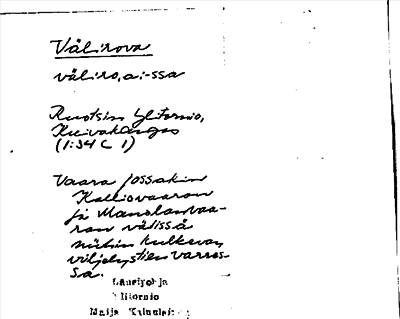 Välirova
väliro,a:-ssa
Ruotsin Ylitornio,
Kuivakangas
(1:34 C 1)
Vaara jossakin
Kalliovaaran
ja Manolanvaa-
ran välissä
niihin kulkevan
viljelystien varres-
sa.
Ylitornio
Maija